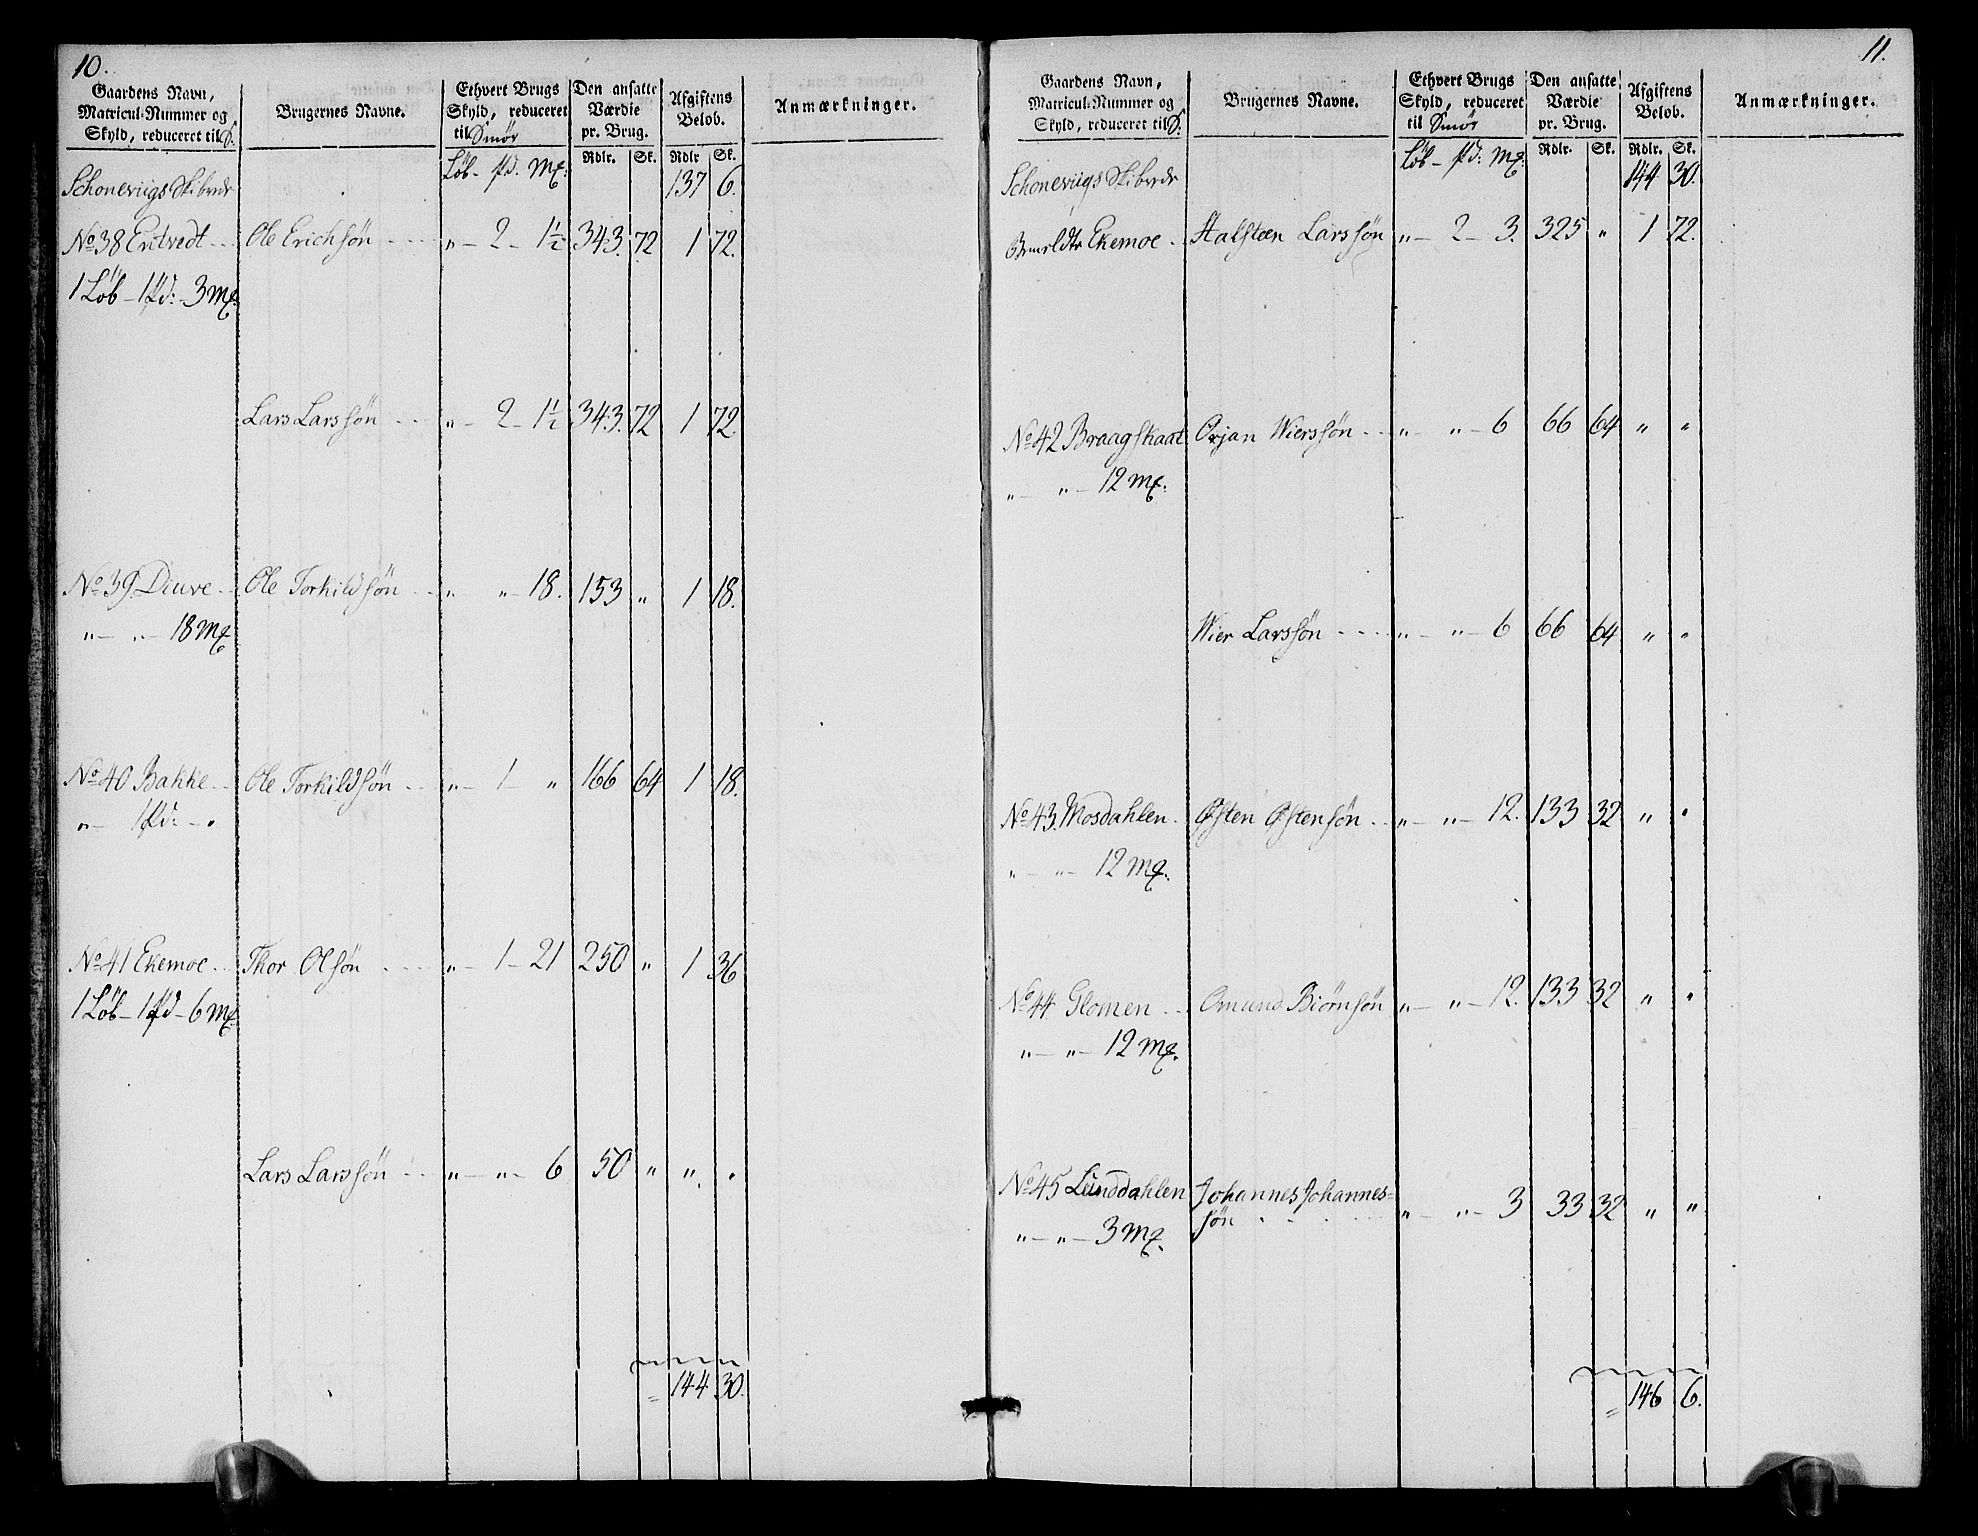 10.
Gaardens Navn, Matricul-Nummer og Skyld, reduceret til S.
Brugernes Navne.
Ethvert Brugs Skyld, reduceret til Smör
Den ansatte Værdie pr. Brug.
Afgiftens Belob.
Anmærkninger.
Löb - Pd. Mk: Rdlr. Sk. Rdlr Sk.
Schoneviigs Skibrdr 137 6.
No 38 Eritvedt .. Ole Erichsön .... " - 2 - 1½ 343. 72 1 72.
1 Löb - 1 Pd: - 3 Mk.
Lars Larssön ... " - 2 - 1½ 343. 72 1 72.
No 39. Diuve .. Ole Torkildsön .. " " - 18. 153 " 1 18.
" - " - 18 Mk
No 40 Bakke .. Ole Torkildsön .. " - 1 - " 166 64 1 18.
" - 1 Pd: - "
No 41 Ekemoe .. Thor Olsön .... " - 1 - 21 250 " 1 36
1 Löb - 1 Pd - 6 Mk.
Lars Larssön ... " - " - 6 50 " " "
= 144 30.
11.
Gaardens Navn, Matricul-Nummer og Skyld, reduceret til S.
Brugernes Navne.
Ethvert Brugs Skyld, reduceret til Smör
Den ansatte Værdie pr. Brug.
Afgiftens Belob.
Anmærkninger.
Löb - Pd: Mk: Rdlr. Sk. Rdlr. Sk.
Schoneviigs Skibrdr 144 30.
Ekemoe .. Halsteen Larssön " - 2 - 3. 325 " 1 72.
No 42 Braagskaat Orjan Wierssön .. " - " - 6 66 64 " "
" - " - 12 Mk.
Wier Larssön .... " - " - 6 66 64 " "
No 43. Mosdahlen . Østen Østensön .. " - " - 12. 133 32 " "
" - " - 12 Mk.
No 44 Glomen ... Omund Biörnsön " - " - 12. 133 32 " "
" - " - 12 Mk.
No 45 Lunddahlen Johannes Johannes=
sön .... " " - 3 33 32 " "
" - " - 3 Mk.
= 146 6.